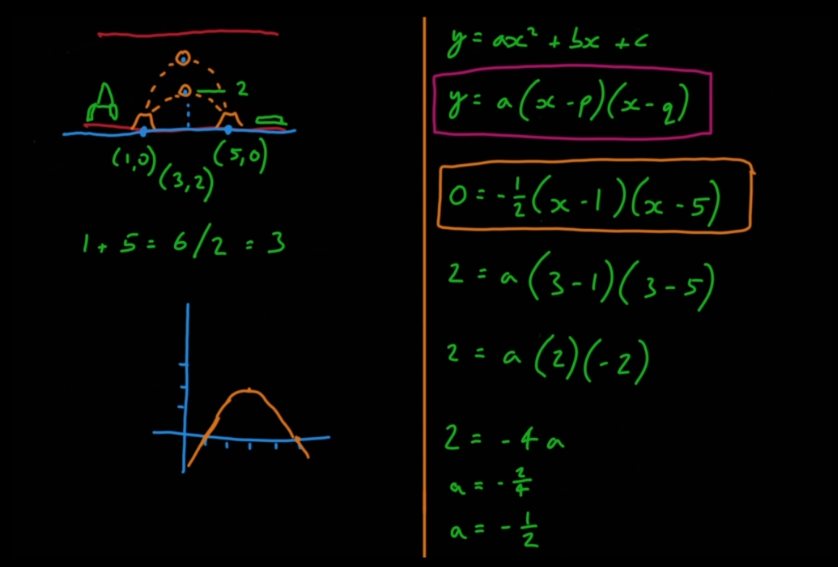 2
(1,0) (3,2) (5,0)
1 + 5 = 6/2 = 3
y = ax² + bx + c
y = a(x - p)(x - q)
0 = -1/2(x - 1)(x - 5)
2 = a(3 - 1)(3 - 5)
2 = a(2)(-2)
2 = -4a
a = -2/4
a = -1/2